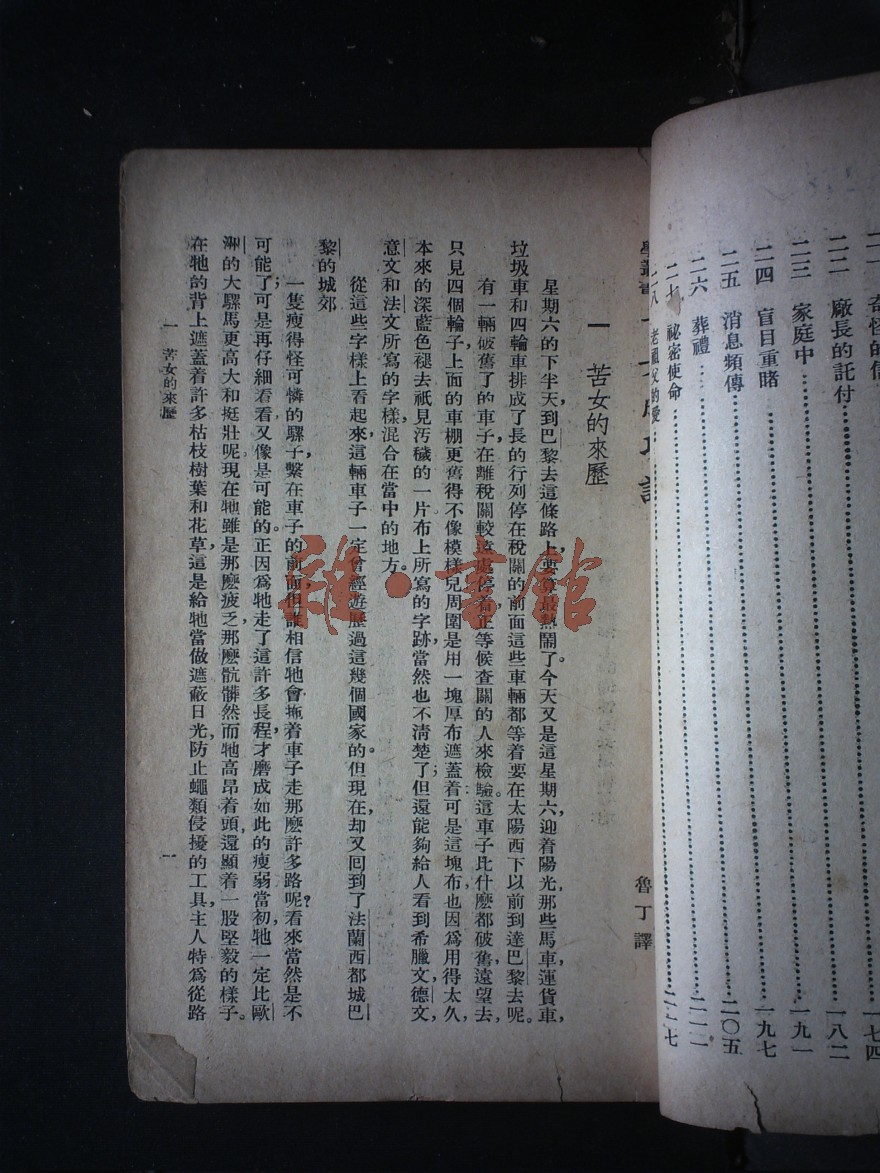 二二 廠長的託付 一八二
二三 家庭中 一九一
二四 盲目重睹 一九七
二五 消息頻傳 二〇五
二六 葬禮
二七 祕密使命
魯丁譯
一 苦女的來歷
星期六的下半天,到巴黎去這條路上,要算最熱鬧了。今天又是這星期六,迎着陽光,那些馬車,運貨車,
垃圾車和四輪車排成了長的行列停在稅關的前面這些車輛都等着要在太陽西下以前到達巴黎去呢。
有一輛破舊了的車子,在離稅關較遠處停着,正等候查關的人來檢驗。這車子比什麽都破舊,遠望去,
只見四個輪子,上面的車棚更舊得不像模樣兒周圍是用一塊厚布遮蓋着;可是這塊布也因爲用得太久,
本來的深藍色褪去祇見汚穢的一片布上所寫的字跡,當然也不清楚了;但還能夠給人看到希臘文,德文,
意文和法文所寫的字樣,混合在當中的地方。
從這些字樣上看起來,這輛車子一定曾經遊歷過這幾個國家的。但現在,却又回到了法蘭西都城巴
黎的城郊
一隻瘦得怪可憐的騾子,繫在車子的前面,但誰相信牠會拖着車子走那麽許多路呢?看來當然是不
可能了;可是再仔細看看,又像是可能的。正因爲牠走了這許多長程,才磨成如此的瘦弱,當初,牠一定比歐
洲的大騾馬更高大和挺壯呢現在牠雖是那麽疲乏,那麽骯髒然而牠高昂着頭,還顯着一股堅毅的樣子。
在牠的背上遮蓋着許多枯枝樹葉和花草,這是給牠當做遮蔽日光,防止蠅類侵擾的工具,主人特爲從路
一 苦女的來歷 一
雜·書館